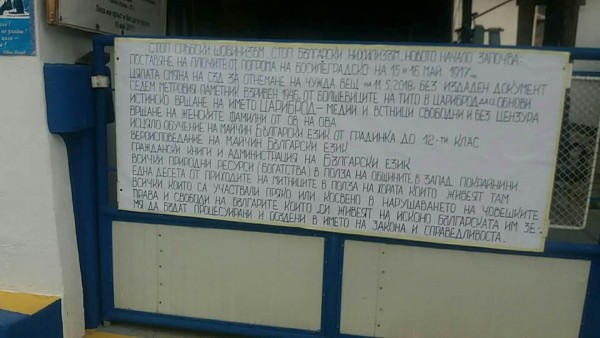 СТОП СРЪБСКИ ШОВИНИЗЪМ. СТОП БЪЛГАРСКИ НИХИЛИЗЪМ. НОВОТО НАЧАЛО ЗАПОЧВА:
ПОСТАВЯНЕ НА ПЛОЧИТЕ ОТ ПОГРОМА НА БОСИЛЕГРАДСКО НА 15 И 16 МАЙ 1917 г.
ЦЯЛАТА СМЯНА НА СЪД ЗА ОТНЕМАНЕ НА ЧУЖДА ВЕЩ НА 11.5.2018. БЕЗ ИЗДАДЕН ДОКУМЕНТ
СЕДЕМ МЕТРОВИЯ ПАМЕТНИК ВЗРИВЕН 1946 ОТ БОЛШЕВИЦИТЕ НА ТИТО В ЦАРИБРОД ДА СЕ ОБНОВИ
ИСТИНСКО ВРЩАНЕ НА ИМЕТО ЦАРИБРОД - МЕДИИ И ВСТНИЦИ СВОБОДНИ И БЕЗ ЦЕНЗУРА
ВРЩАНЕ НА ЖЕНСКИТЕ ФАМИЛИИ ОТ ОВ НА ОВА
ИЗЦЯЛО ОБУЧЕНИЕ НА МАЙЧИН БЪЛГАРСКИ ЕЗИК ОТ ГРАДИНКА ДО 12-ТИ КЛАС
ВЕРОИСПОВЕДАНИЕ НА МАЙЧИН БЪЛГАРСКИ ЕЗИК
ГРАЖДАНСКИ КНИГИ И АДМИНИСТРАЦИЯ НА БЪЛГАРСКИ ЕЗИК
ВСИЧКИ ПРИРОДНИ РЕСУРСИ (БОГАТСТВА) В ПОЛЗА НА ОБЩИНИТЕ В ЗАПАД. ПОКРАЙНИНИ
ЕДНА ДЕСЕТА ОТ ПРИХОДИТЕ НА МИТНИЦИТЕ В ПОЛЗА НА ХОРАТА КОИТО ЖИВЕЯТ ТАМ
ВСИЧКИ КОИТО СА УЧАСТВАЛИ ПРЯКО ИЛИ КОСВЕНО В НАРУШАВАНЕТО НА ЧОВЕШКИТЕ
ПРАВА И СВОБОДИ НА БЪЛГАРИТЕ КОИТО СИ ЖИВЕЯТ НА ИСКОНО БЪЛГАРСКАТА ИМ ЗЕ-
МЯ ДА БЪДАТ ПРОЦЕСУИРАНИ И ОСЪДЕНИ В ИМЕТО НА ЗАКОНА И СПРАВЕДЛИВОСТА.